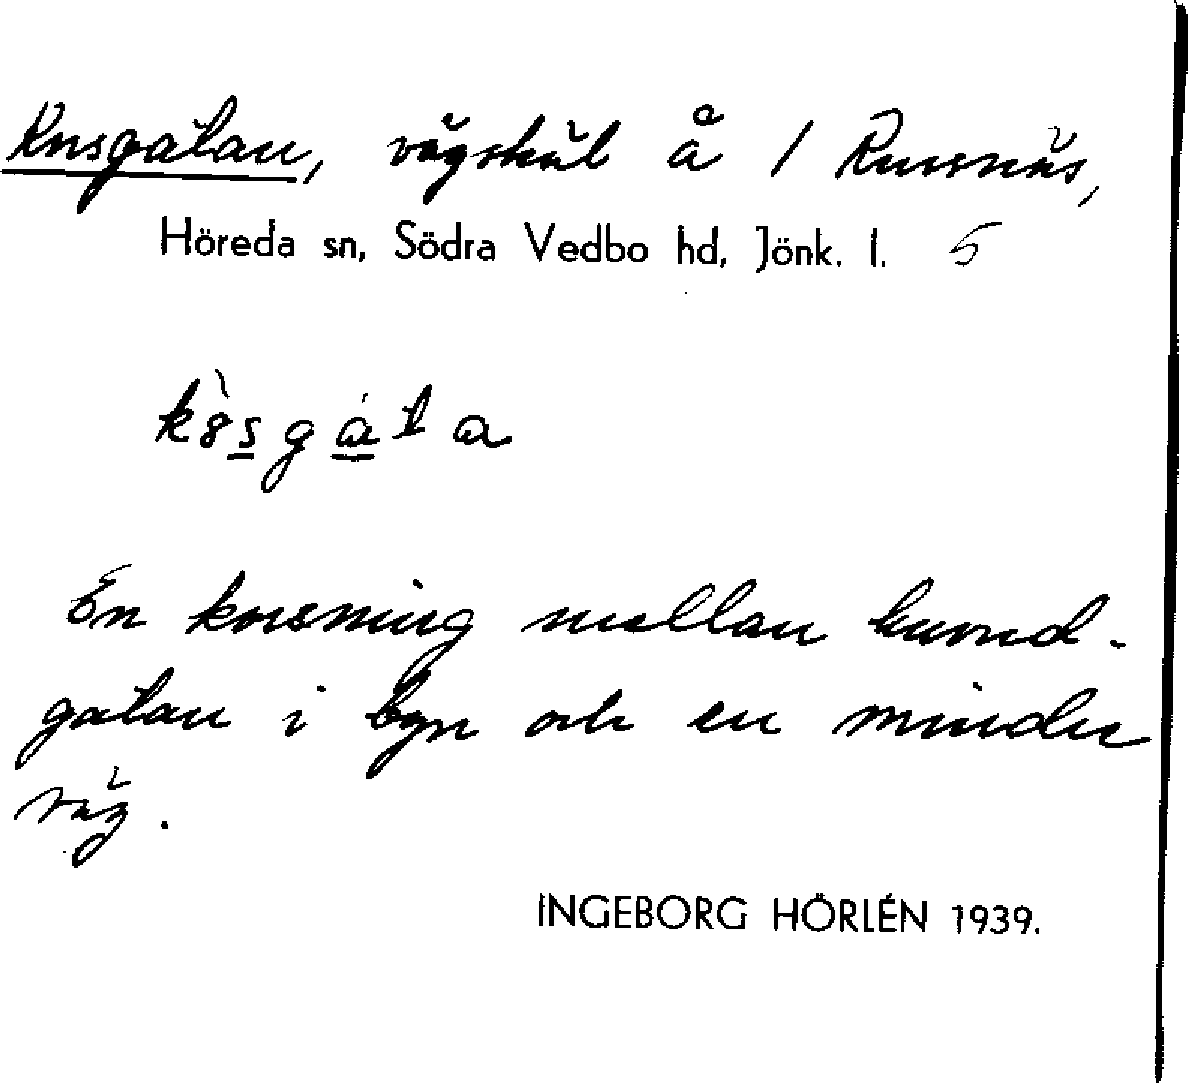 Korsgatan, vägskäl å 1 Russnäs,
Höreda sn, Södra Vedbo hd, Jönk. l. 5
kösgáta
En korsning mellan huvud-
gatan i byn och en mindre
väg.
INGEBORG HÖRLÉN 1939.